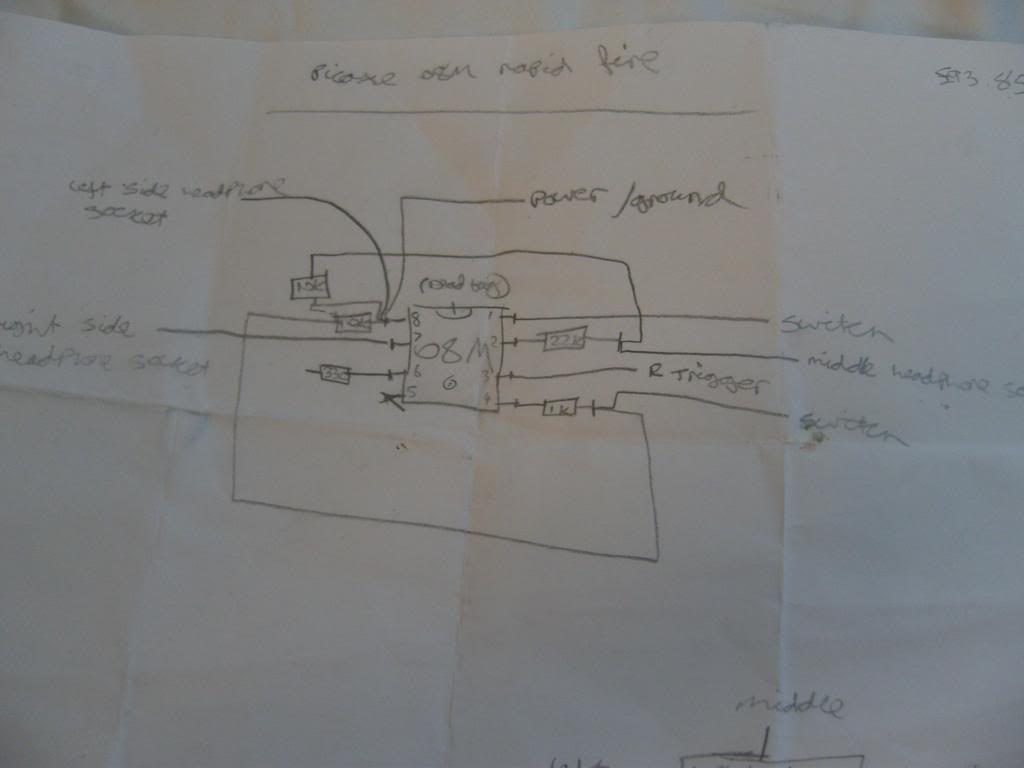 Picaxe 08M rapid fire
left side headphone
socket
Power /ground
10K
10K
8
1
switch
right side
headphone socket
7
08M
2
22K
middle headphone so
6
6
3
R Trigger
33
5
4
1K
switch
middle